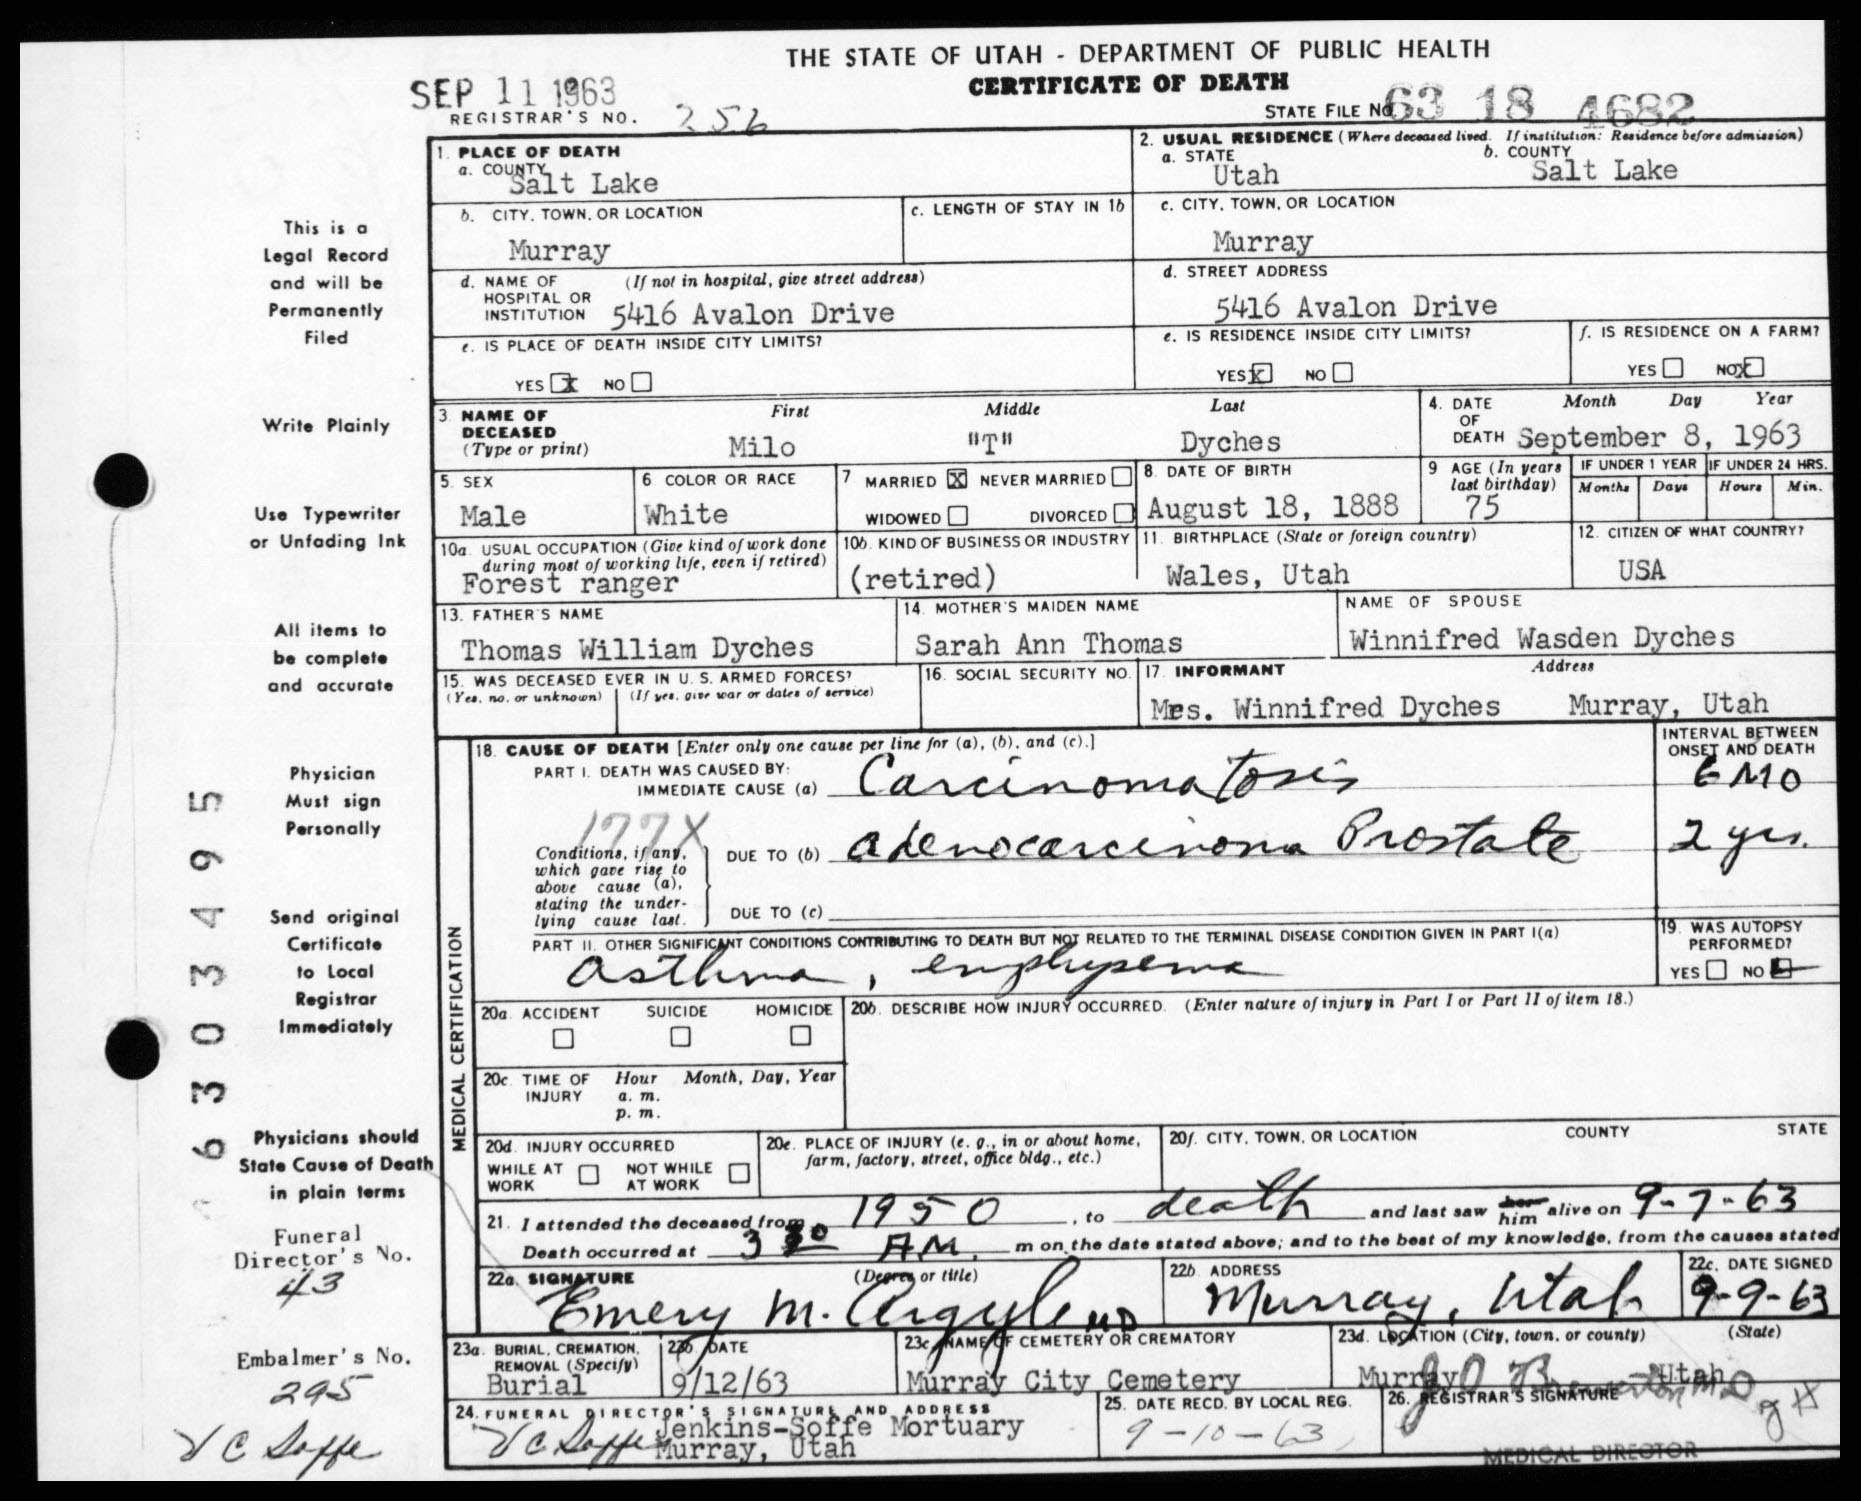 THE STATE OF UTAH - DEPARTMENT OF PUBLIC HEALTH
CERTIFICATE OF DEATH
SEP 11 1963
REGISTRAR'S NO. 256
STATE FILE NO. 63 18 4682
This is a
Legal Record
and will be
Permanently
Filed
Write Plainly
Use Typewriter
or Unfading Ink
All items to
be complete
and accurate
Physician
Must sign
Personally
Send original
Certificate
to Local
Registrar
Immediately
Physicians should
State Cause of Death
in plain terms
Funeral
Director's No.
43
Embalmer's No.
295
V C Soffe
6 3 0 3 4 9 5
1. PLACE OF DEATH
a. COUNTY
Salt Lake
2. USUAL RESIDENCE (Where deceased lived. If institution: Residence before admission)
a. STATE b. COUNTY
Utah Salt Lake
b. CITY, TOWN, OR LOCATION
Murray
c. LENGTH OF STAY IN 1b
c. CITY, TOWN, OR LOCATION
Murray
d. NAME OF (If not in hospital, give street address)
HOSPITAL OR
INSTITUTION 5416 Avalon Drive
d. STREET ADDRESS
5416 Avalon Drive
e. IS PLACE OF DEATH INSIDE CITY LIMITS?
YES X NO
e. IS RESIDENCE INSIDE CITY LIMITS?
YES X NO
f. IS RESIDENCE ON A FARM?
YES NO X
3. NAME OF First Middle Last
DECEASED
(Type or print) Milo "T" Dyches
4. DATE Month Day Year
OF
DEATH September 8, 1963
5. SEX
Male
6 COLOR OR RACE
White
7 MARRIED X NEVER MARRIED
WIDOWED DIVORCED
8. DATE OF BIRTH
August 18, 1888
9 AGE (In years
last birthday)
75
IF UNDER 1 YEAR
Months Days
IF UNDER 24 HRS.
Hours Min.
10a. USUAL OCCUPATION (Give kind of work done
during most of working life, even if retired)
Forest ranger
10b. KIND OF BUSINESS OR INDUSTRY
(retired)
11. BIRTHPLACE (State or foreign country)
Wales, Utah
12. CITIZEN OF WHAT COUNTRY?
USA
13. FATHER'S NAME
Thomas William Dyches
14. MOTHER'S MAIDEN NAME
Sarah Ann Thomas
NAME OF SPOUSE
Winnifred Wasden Dyches
15. WAS DECEASED EVER IN U. S. ARMED FORCES?
(Yes, no, or unknown) (If yes, give war or dates of service)
16. SOCIAL SECURITY NO.
17. INFORMANT Address
Mrs. Winnifred Dyches Murray, Utah
MEDICAL CERTIFICATION
18. CAUSE OF DEATH [Enter only one cause per line for (a), (b), and (c).]
INTERVAL BETWEEN
ONSET AND DEATH
PART I. DEATH WAS CAUSED BY:
IMMEDIATE CAUSE (a) Carcinomatosis 6 MO
177X
Conditions, if any,
which gave rise to
above cause (a),
stating the under-
lying cause last.
DUE TO (b) adenocarcinoma Prostate 2 yrs.
DUE TO (c)
PART II. OTHER SIGNIFICANT CONDITIONS CONTRIBUTING TO DEATH BUT NOT RELATED TO THE TERMINAL DISEASE CONDITION GIVEN IN PART I(a)
asthma, emphysema
19. WAS AUTOPSY
PERFORMED?
YES NO
20a. ACCIDENT SUICIDE HOMICIDE
20b. DESCRIBE HOW INJURY OCCURRED. (Enter nature of injury in Part I or Part II of item 18.)
20c. TIME OF Hour Month, Day, Year
INJURY a. m.
p. m.
20d. INJURY OCCURRED
WHILE AT NOT WHILE
WORK AT WORK
20e. PLACE OF INJURY (e. g., in or about home,
farm, factory, street, office bldg., etc.)
20f. CITY, TOWN, OR LOCATION COUNTY STATE
21. I attended the deceased from 1950, to death and last saw her him alive on 9-7-63
Death occurred at 3 30 A.M. m on the date stated above; and to the best of my knowledge, from the causes stated
22a. SIGNATURE (Degree or title)
Emery M. Argyle MD
22b ADDRESS
Murray, Utah
22c. DATE SIGNED
9-9-63
23a. BURIAL, CREMATION,
REMOVAL (Specify)
Burial
23b. DATE
9/12/63
23c. NAME OF CEMETERY OR CREMATORY
Murray City Cemetery
23d. LOCATION (City, town, or county) (State)
Murray Utah
24. FUNERAL DIRECTOR'S SIGNATURE AND ADDRESS
V C Soffe Jenkins-Soffe Mortuary
Murray, Utah
25. DATE RECD. BY LOCAL REG.
9-10-63
26. REGISTRAR'S SIGNATURE
MEDICAL DIRECTOR